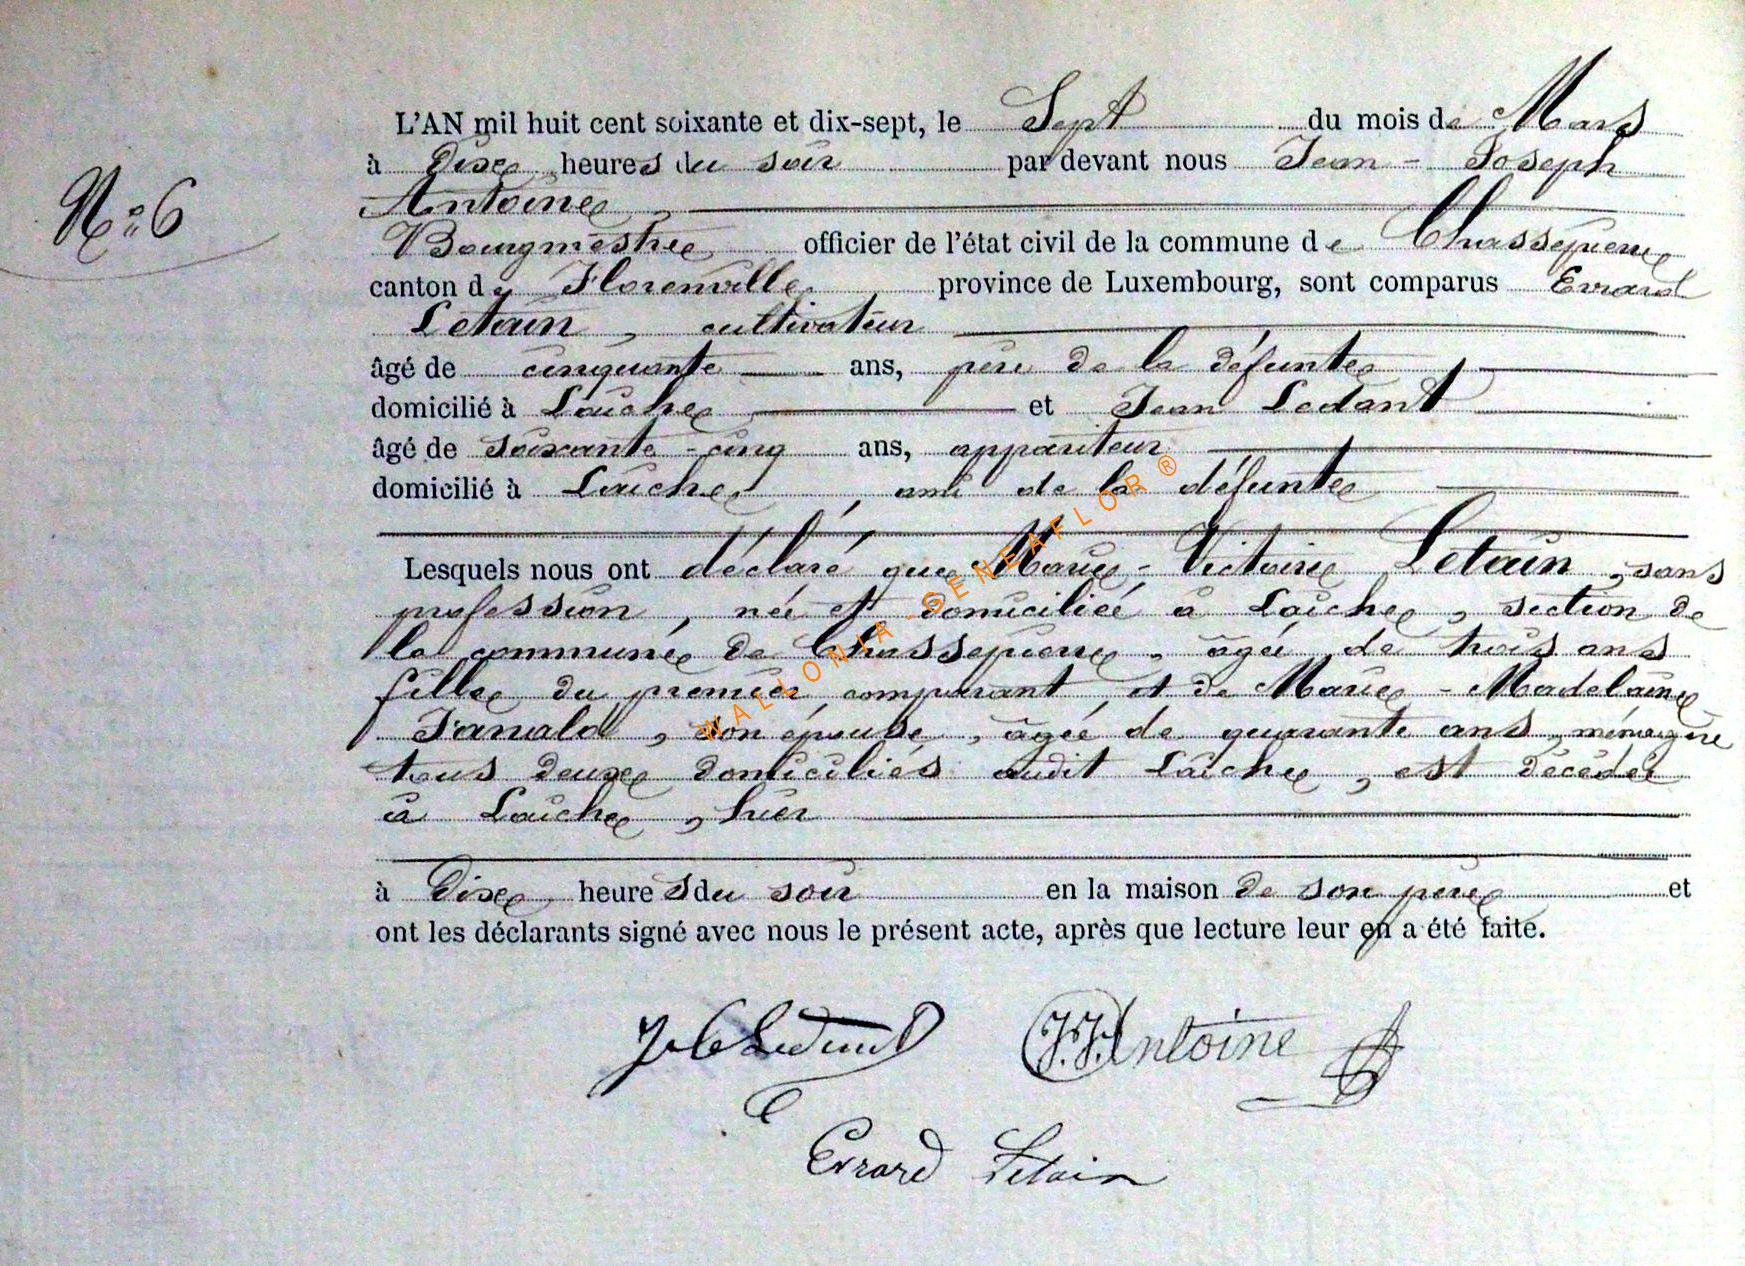 N° 6
L'AN mil huit cent soixante et dix-sept, le Sept du mois de Mars
à dix heures du soir par devant nous Jean-Joseph
Antoine,
Bourgmestre officier de l'état civil de la commune de Chassepierre
canton de Florenville province de Luxembourg, sont comparus Evrard
Letain, cultivateur
âgé de cinquante ans, père de la défunte
domicilié à Laiche et Jean Ledant
âgé de soixante-cinq ans, appariteur
domicilié à Laiche, ami de la défunte
Lesquels nous ont déclaré que Marie-Victoire Letain, sans
profession, née et domiciliée à Laiche, section de
la commune de Chassepierre, âgée de trois ans
fille du premier comparant et de Marie-Madelaine
son épouse, âgée de quarante ans, ménagère
tous deux domiciliés audit Laiche, est décédée
à Laiche, hier
à dix heures du soir en la maison de son père et
ont les déclarants signé avec nous le présent acte, après que lecture leur en a été faite.
Ledant J.J. Antoine
Evrard Letain
WALLONIA-GENEAFLOR®